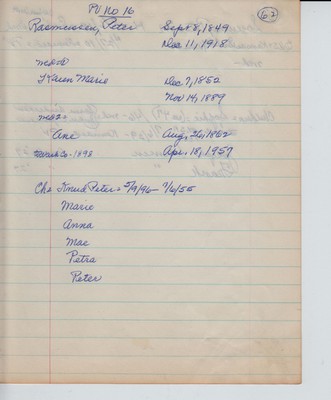 PV. No 16
67
Rasmussen, Peter Sept 8, 1849
Dec 11, 1918
Karen Marie Dec 7, 1852
Nov 14, 1889
Ane Aug. 26, 1862
Apr. 18, 1957
1898
Knud Peter - 5/9/96 - 9/6/55
Marie
Anna
Mae
Petra
Peter